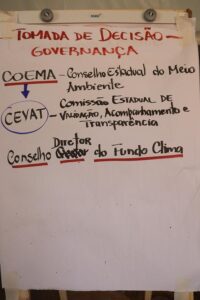 TOMADA DE DECISÃO -
GOVERNANÇA
COEMA - Conselho Estadual do Meio
Ambiente
CEVAT - Comissão Estadual de
Validação, Acompanhamento e
Transparência
Diretor
Conselho do Fundo Clima